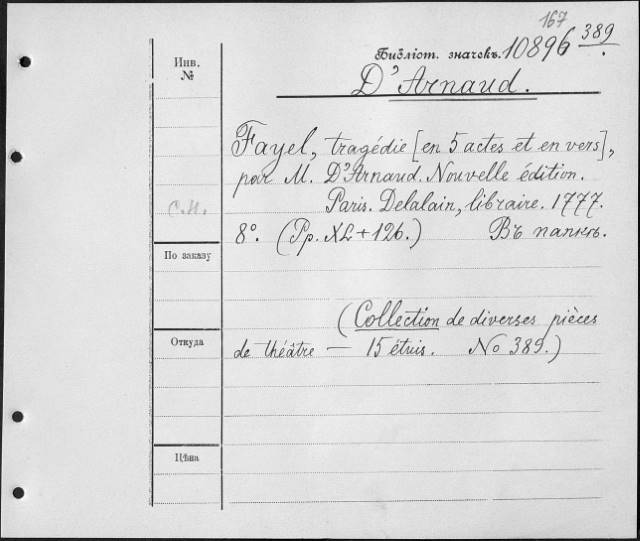 167
Библіот. значекъ. 10896 389
Инв.
№
D'Arnaud.
Fayel, tragédie [en 5 actes et en vers],
par M. D'Arnaud. Nouvelle édition.
Paris. Delalain, libraire. 1777.
С.Н.
8º. (Pp. XL + 126.) Въ папкѣ.
По заказу
(Collection de diverses pièces
Откуда
de théâtre — 15 étuis. No 389.)
Цѣна